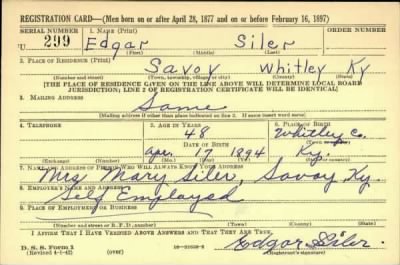 REGISTRATION CARD—(Men born on or after April 28, 1877 and on or before February 16, 1897)
SERIAL NUMBER 1. NAME (Print) ORDER NUMBER
U 299 Edgar Siler
(First) (Middle) (Last)
2. PLACE OF RESIDENCE (Print)
Savoy Whitley Ky
(Number and street) (Town, township, village, or city) (County) (State)
[THE PLACE OF RESIDENCE GIVEN ON THE LINE ABOVE WILL DETERMINE LOCAL BOARD
JURISDICTION; LINE 2 OF REGISTRATION CERTIFICATE WILL BE IDENTICAL]
3. MAILING ADDRESS
Same
[Mailing address if other than place indicated on line 2. If same insert word same]
4. TELEPHONE 5. AGE IN YEARS 6. PLACE OF BIRTH
48 Whitley Co.
DATE OF BIRTH (Town or county)
Apr. 17 1894 Ky.
(Exchange) (Number) (Mo.) (Day) (Yr.) (State or country)
7. NAME AND ADDRESS OF PERSON WHO WILL ALWAYS KNOW YOUR ADDRESS
Mrs Mary Siler, Savoy, Ky.
8. EMPLOYER'S NAME AND ADDRESS
Self Employed
9. PLACE OF EMPLOYMENT OR BUSINESS
(Number and street or R. F. D. number) (Town) (County) (State)
I AFFIRM THAT I HAVE VERIFIED ABOVE ANSWERS AND THAT THEY ARE TRUE.
D. S. S. Form 1
(Revised 4-1-42) (over) Edgar Siler